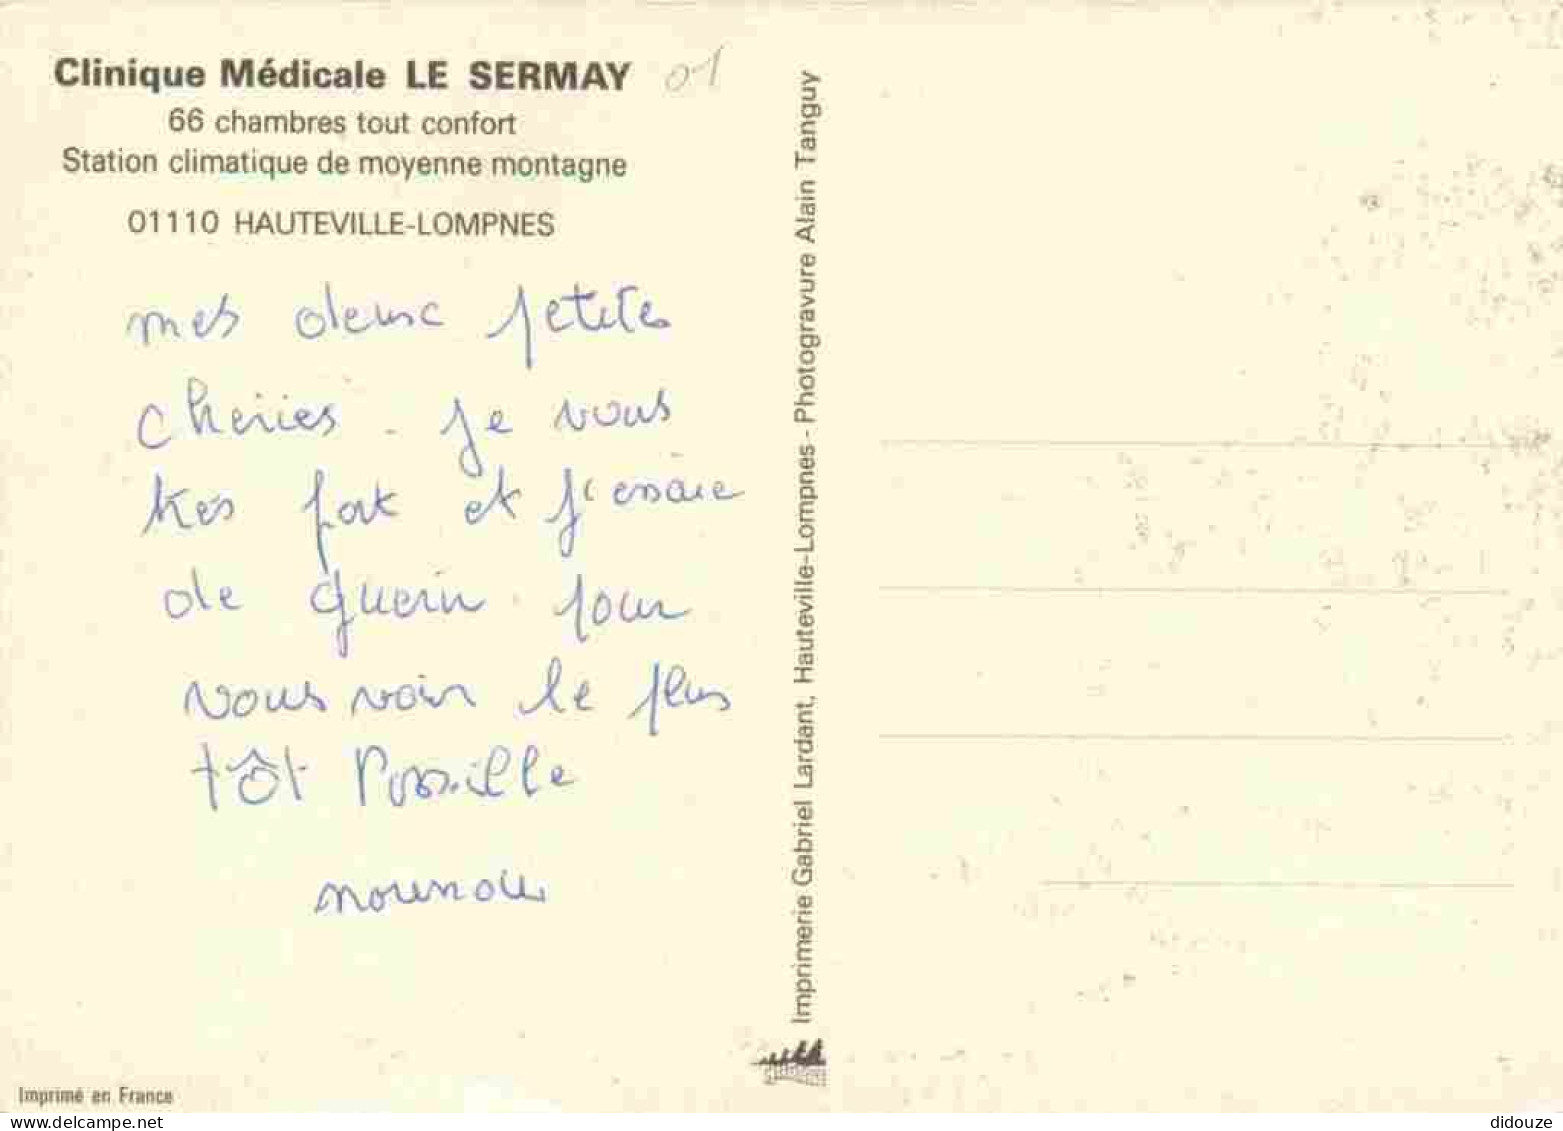 Clinique Médicale LE SERMAY
01
66 chambres tout confort
Station climatique de moyenne montagne
01110 HAUTEVILLE-LOMPNES
mes deux petites
cheries. je vous
kes fort et j'essaie
de guerir pour
vous voir le plus
tôt Possible
nounou
Imprimé en France
Imprimerie Gabriel Lardant, Hauteville-Lompnes - Photogravure Alain Tanguy
www.delcampe.net
didouze